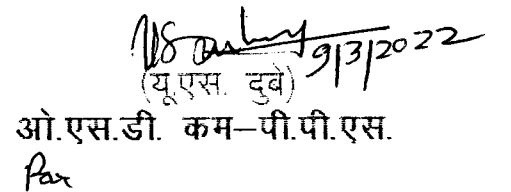 9/3/2022
(यू.एस. दुबे)
ओ.एस.डी. कम–पी.पी.एस.